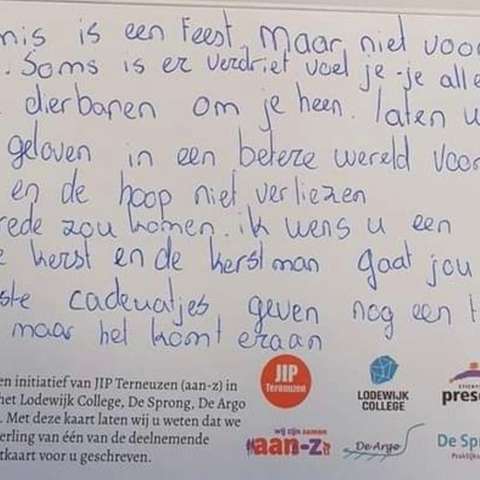 nis is een Feest. Maar niet voor
. Soms is er verdriet voel je je alle
dierbaren om je heen. laten u
geloven in een betere wereld voor
en de hoop niet verliezen
rede zou komen. ik wens u een
e kerst en de kerstman gaat jou
ste cadeuatjes geven nog een t
maar het komt eraan
en initiatief van JIP Terneuzen (aan-z) in
het Lodewijk College, De Sprong, De Argo
. Met deze kaart laten wij u weten dat we
erling van één van de deelnemende
tkaart voor u geschreven.
JIP
Terneuzen
LODEWIJK
COLLEGE
STICHTI
prese
wij zijn samen
aan-z
De Argo
De Sp
Praktijks